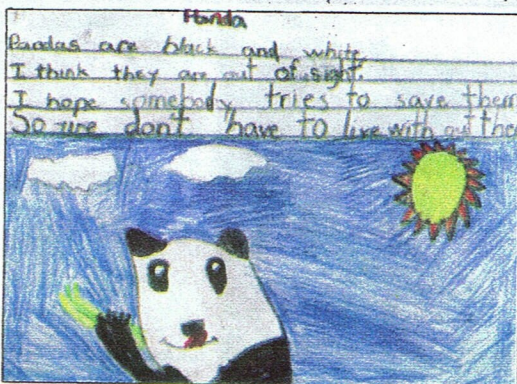 Panda
Pandas are black and white
I think they are out of sight.
I hope somebody tries to save them
So we don't have to live with out the